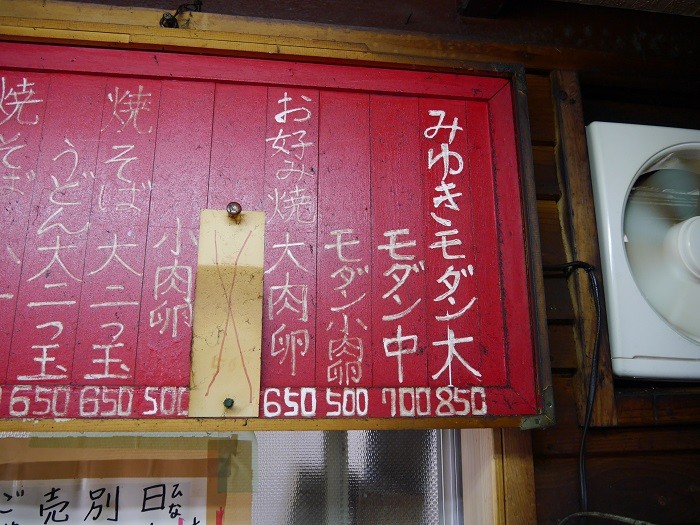 みゆきモダン大 850
モダン中 700
モダン小肉卵 500
お好み焼大肉卵 650
小肉卵 500
焼そば大二つ玉 650
うどん大二つ玉 650
焼そば
日
別
売
ご